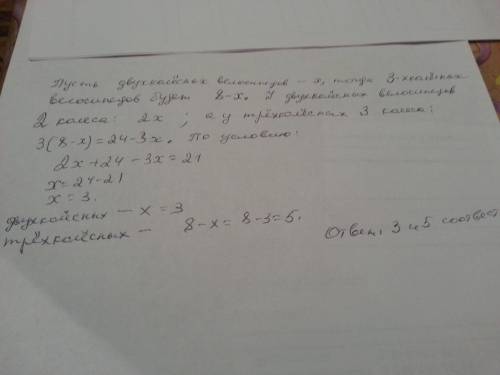 Пусть двухколёсных велосипедов - х, тогда 3-хколёсных
велосипедов будет 8-х. У двухколёсных велосипедов
2 колеса: 2х ; а у трёхколёсных 3 колеса:
3(8-х)=24-3х. По условию:
2х+24-3х=21
х=24-21
х=3.
двухколёсных - х=3
трёхколёсных - 8-х=8-3=5.
Ответ: 3 и 5 соответ